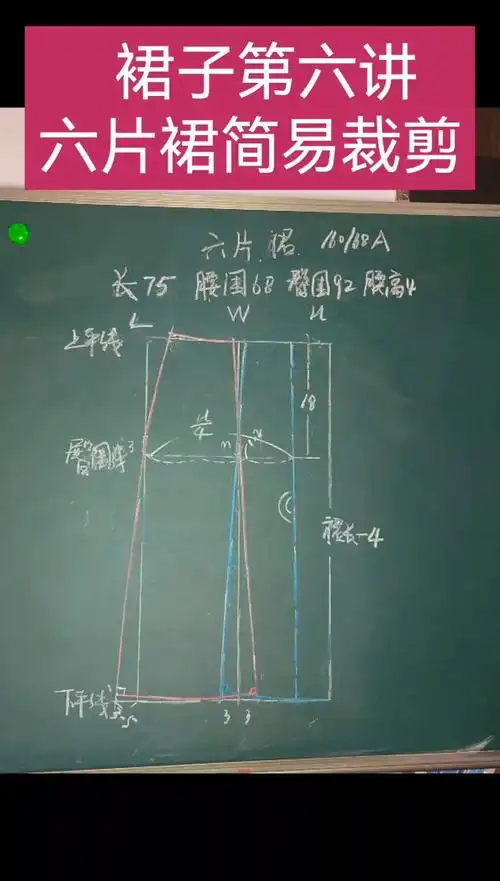 裙子第六讲
六片裙简易裁剪
六片裙 160/68A
长75 腰围68 臀围92 腰高4
L W H
上平线
18
H/4
臀围线
裙长-4
下平线
3 3